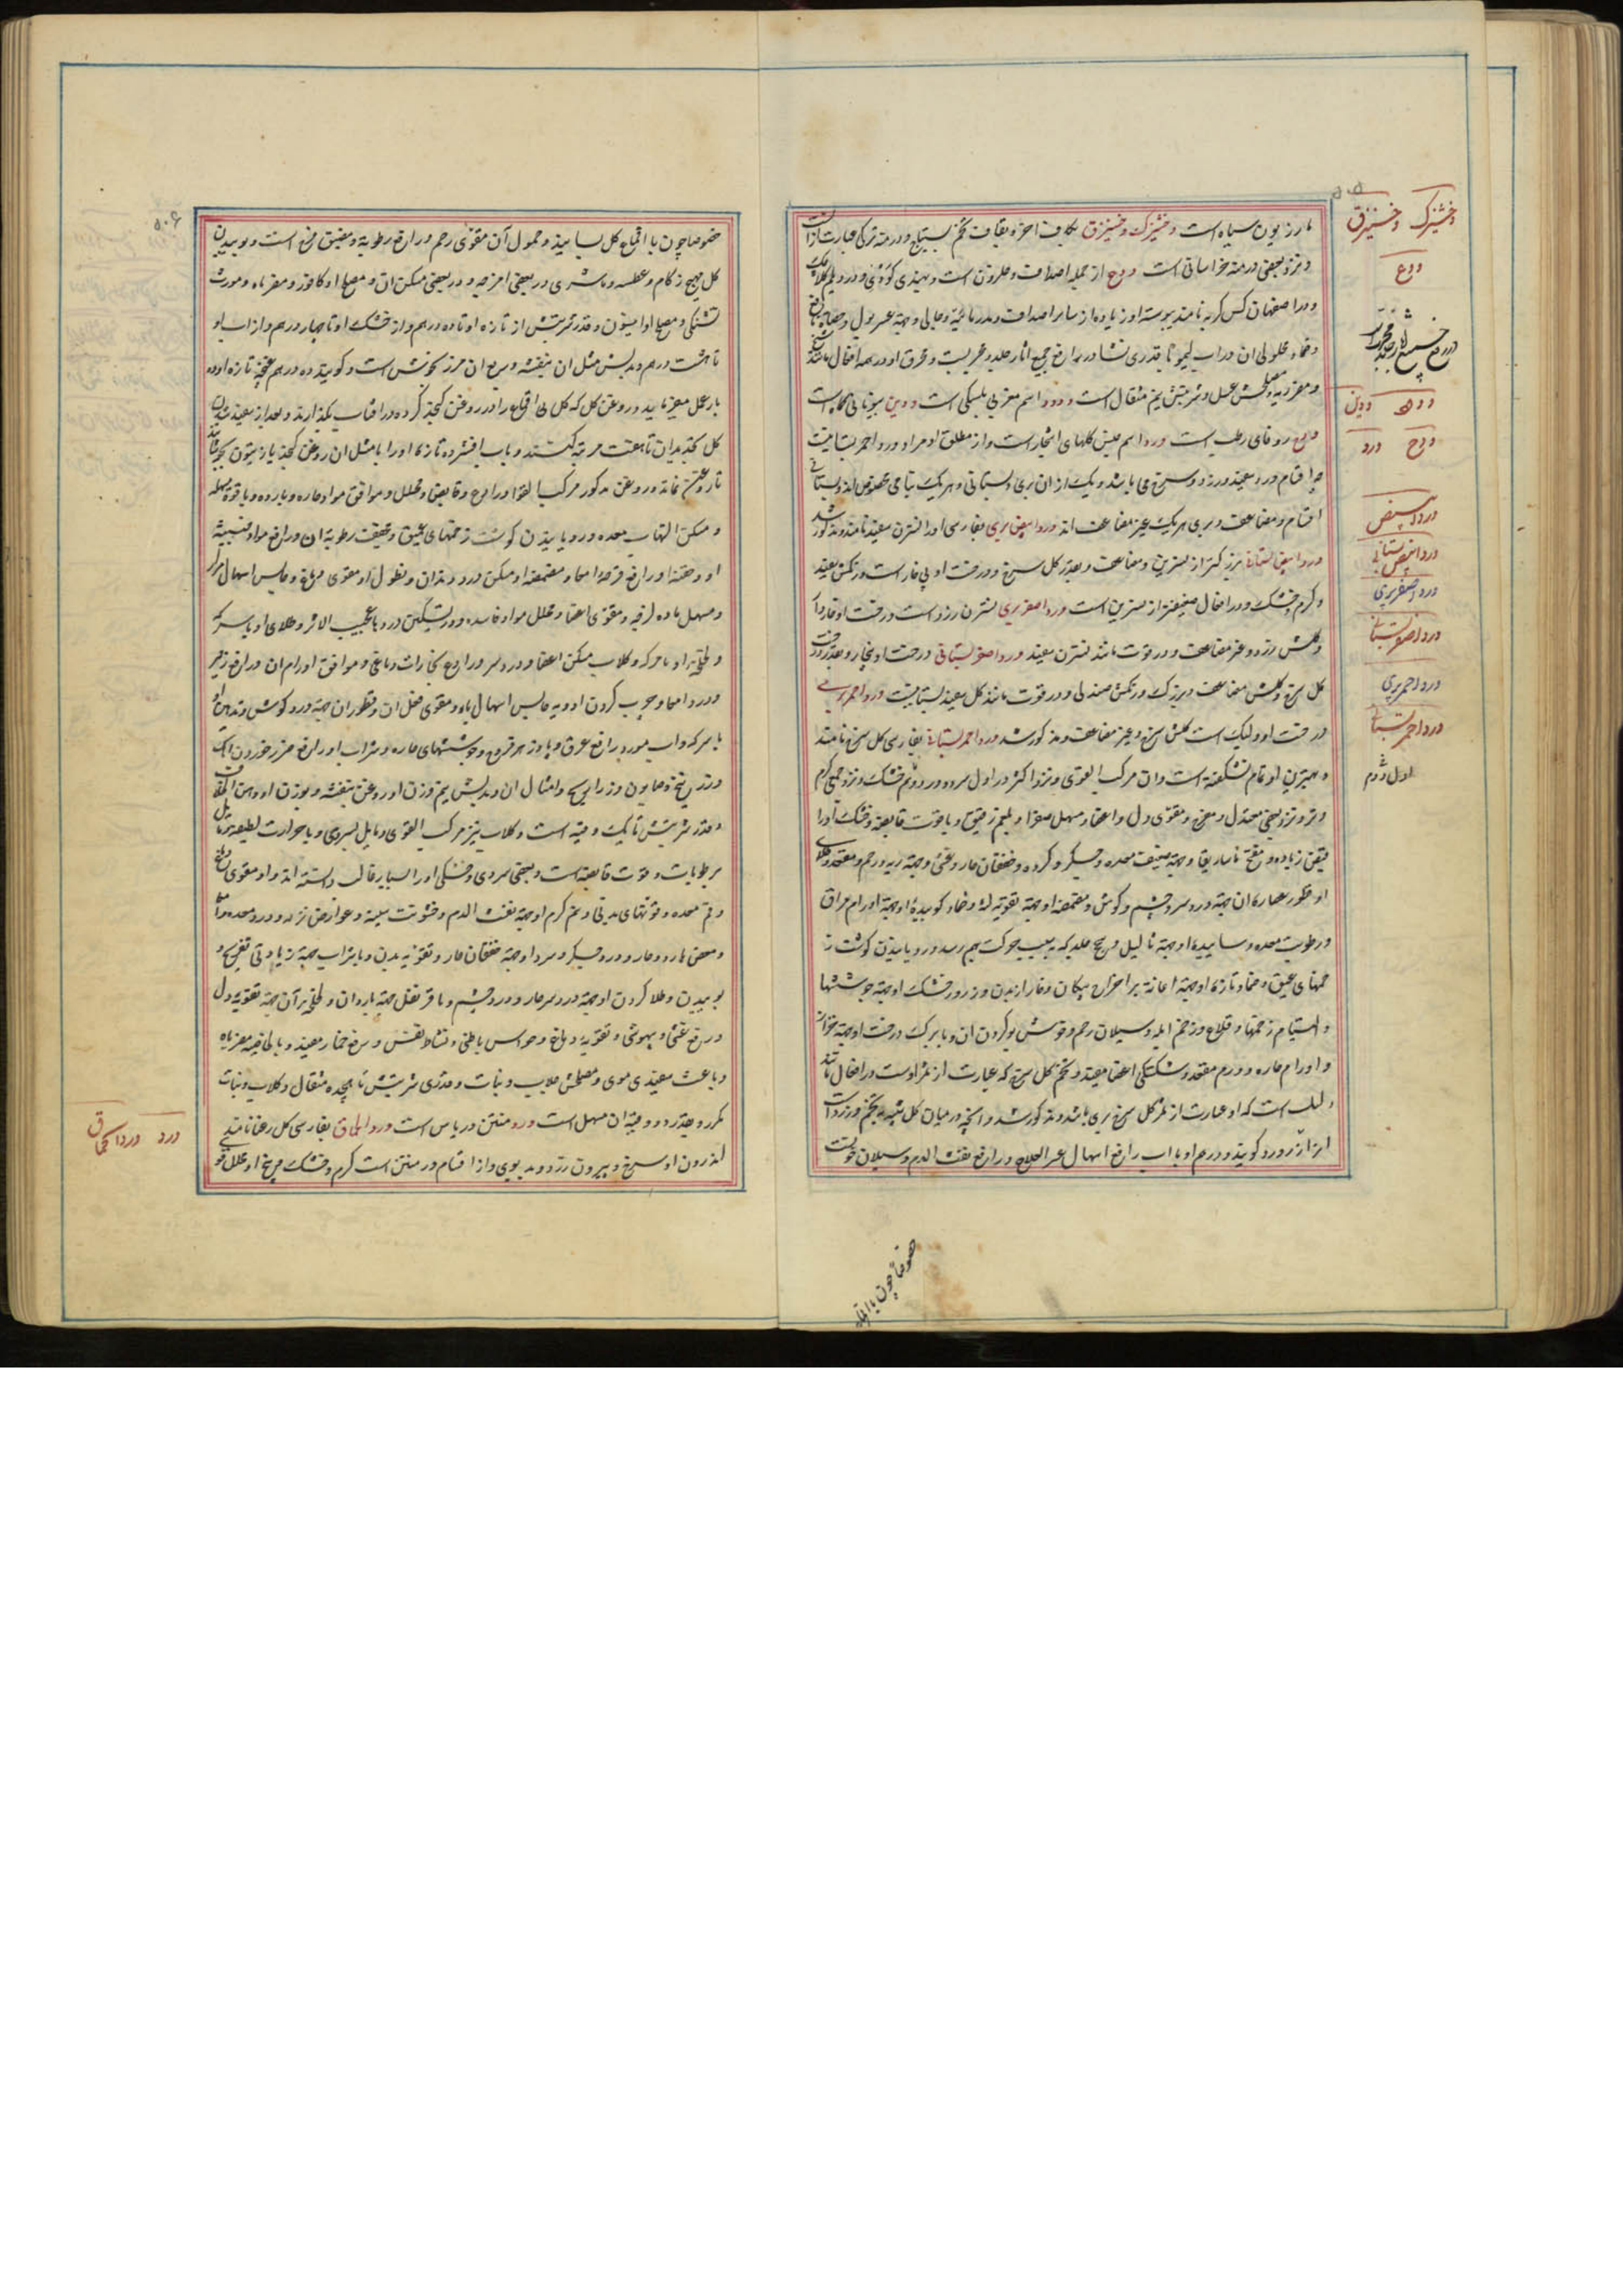 مازریون سیاه است وخشیزک وخشیزق بکاف اخر و بقاف تخم بستیاج و درمنه ترکی عبارت از آنست
و نزد بعضی درمنه خراسانی است ودع از جمله اصداف و حلزون است و بهندی کودی و در دیلم کلاچک
و در اصفهان کس گربه نامند پوسته او زیاده از سایر اصداف و مدر
و ضماد محلول ان در اب لیمو با قدری نشادر رافع جمیع اثار جلد و مجربست و محرق او در همه افعال مانند
و مضر ریه و مصلحش عسل و شربتش نیم مثقال است ودود اسم مغربی بلسکی است ودین بیونانی کماه است
ودح زوفای رطب است ورد اسم جنس گلهای اشجار است و از مطلق او مراد ورد احمر بستانیست
و اقسام ورد سفید و زرد و سرخ می باشد و یک از ان بری و بستانی و هر یک بنامی مخصوص اند و بستانی
اقسام و مضاعف و بری هر یک غیر مضاعف اند ورد ابیض بری بفارسی او را نسترن سفید نامند و مذکور شد
ورد ابیض بستانی بزرگتر از نسرین و مضاعف و بقدر گل سرخ و درخت او بی خار است و رنگش سفید
و گرم و خشک و در افعال ضعیفتر از نسرین است ورد اصفر بری نسترن زرد است درخت او خاردار
و گلش زرد و غیر مضاعف و در قوت مانند نسترن سفید ورد اصفر بستانی درخت او بیخار و بقدر درخت
گل سرخ و گلش مضاعف و بزرگ و رنگش صندلی و در قوت مانند گل سفید بستانیست ورد احمر بری
درخت او ولیک است گلش سرخ و غیر مضاعف و مذکور شد ورد احمر بستانی بفارسی گل سرخ نامند
و بهترین او تمام نشکفته است و ان مرکب القوی و نزد اکثر در اول سرد و در دوم خشک و نزد جمعی گرم
و تر و نزد بعضی معتدل و مفرح و مقوی دل و اعضا و مسهل صفرا و بلغم رقیق و با قوت قابضه و خشک او را
قبض زیاده و مفتح ماساریقا و جهة ضعف معده و جگر و گرده و خفقان حار و غشی و جهة ریه و رحم و مقعد
او قطور عصاره ان جهة درد سر و چشم و گوش و مضمضه او جهة تقویه لثه و ضماد کوبیدهٔ او جهة اورام مراق
و رطوبت معده و ساییدهٔ او جهة ثالیل و سحج جلد که بسبب حرکت بهم رسد و رویانیدن گوشت ز
خمهای عمیق و ضماد تازه او جهة اعانت بر اخراج پیکان و خار از بدن و زرورد خشک او جهة جوششها
و التیام زخمها و قلاع و زخم ابله و سیلان رحم و فرش کردن ان و با برک درخت او جهة
و اورام حاره و ورم مقعد و شکستگی اعضا مفید و تخم گل سرخ که عبارت از ثمر اوست در افعال مانند
دلیک است که او عبارت از ثمر گل سرخ بری باشد و مذکور شد و انچه در میان گل شبیه بتخم و زرد است
انرا زرورد گویند و درهم او با اب رافع اسهال عسر العلاج و رافع نفث الدم و سیلان خونست
خصوصا چون با اقم
وخشیزک وخشیزق
ودع
ودود ودین
ودح ورد
ورد ابیض
ورد ابیض بستانی
ورد اصفر بری
ورد اصفر بستانی
ورد احمر بری
ورد احمر بستانی
اول دوم
۵۰۶
خصوصا چون با اقماع گل بسایند و حمول آن مقوی رحم و رافع رطوبة و مضیق فرج است و بوییدن
گل مهیج زکام و عطسه و ماشری در بعضی امزجه و در بعضی مسکن ان و مصلح او کافور و مضر باه و مورث
تشنگی و مصلح او انیسون و قدر شربتش از تازه او تا ده درهم و از خشک او تا چهار درهم و از اب او
تا هشت درهم و بدلش مثل ان بنفشه و ربع ان مرزنجوش است و گویند ده درهم غنچه تازه او ده
بار عمل میفرماید و روغن گل که گل بی اقماع را در روغن کنجد کرده در افتاب بگذارند و بعد از سفید شدن
گل تجدید ان تا هفت مرتبه کنند و باب افشرده تازه او را با مثل ان روغن کنجد یا زیتون بجوشانند
تا روغن بماند و روغن مذکور مرکب القوا و رادع و قابض و محلل و موافق مواد حاره و بارده و با قوة مسهله
و مسکن التهاب معده و رویانیدن گوشت زخمهای عمیق و مجفف رطوبة ان و رافع مواد خبیثه
او و حقنه او رافع قرحه امعا و مضمضه او مسکن درد دندان و نطول او مقوی دماغ و حابس اسهال مراری
و مسهل ماده لزجه و مقوی اعضا و محلل مواد فاسده و در تسکین دردها عجیب الاثر و طلای او با سرکه
و لخلخه او با سرکه و گلاب مسکن اعضا و درد سر و رادع بخارات دماغی و موافق اورام ان و رافع زحیر
و درد امعا و چرب کردن ادویه حابس اسهال باو مقوی فعل ان و قطور ان جهة درد گوش و تدهین او
با سرکه و اب مورد رافع عرق و با
و زرنیخ و صابون و زراریح و امثال ان و بدلش نیم وزن او روغن بنفشه و بوزن او
و قدر شربتش تا یک وقیه است و گلاب نیز مرکب القوی و مایل بسردی و با حرارت لطیفه
و رطوبات و قوت قابضه است و بعضی سردی و خشکی او را بسیار غالب دانسته اند و او مقوی دماغ
و فم معده و قوتهای بدنی و نیم گرم او جهة نفث الدم و خشونت سینه و عوارض نزله و درد معده
و مغص بارد و حار و درد جگر و سرد او جهة خفقان حار و تقویه بدن و با شراب جهة زیادتی تفریح و
بوییدن و طلا کردن او جهة درد سر حار و درد چشم و با قرنفل جهة باردان و لخلخه بر آن جهة تقویة دل
و رفع غشی و بیهوشی و تقویه دماغ و حواس باطنی و نشاط نفس و رفع خمار مفید و بالخاصیه مضر باه
و باعث سفیدی موی و مصلحش جلاب و نبات و قدر شربتش تا هیجده مثقال و گلاب و نبات
مکرر و بقدر دو وقیهٔ ان مسهل است ورد منتن دریاس است ورد الحماق بفارسی گل رعنا نامند
اندرون او سرخ و بیرون زرد و بدبوی و از اقسام ورد منتن است گرم و خشک
ورد ورد الحماق